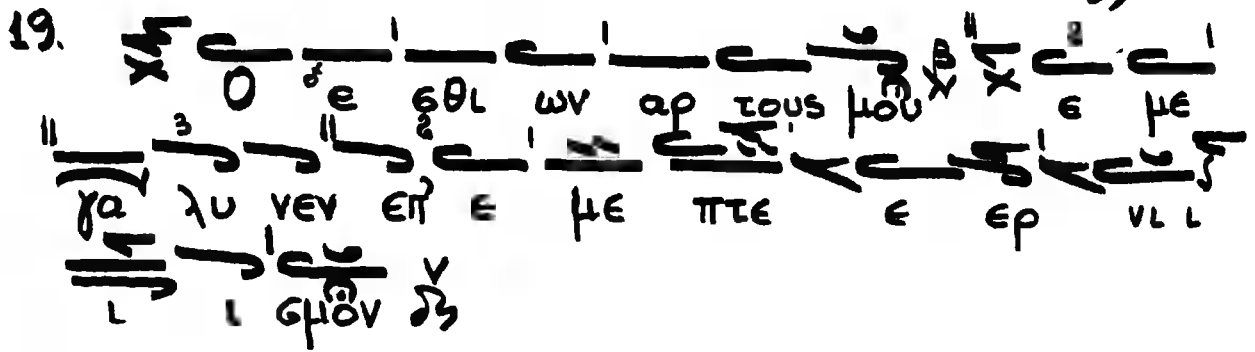 19. Ο ε σθι ων αρ τους μου ε με
γα λυ νεν επ ε με πτε ε ερ νι ι
ι ι σμον